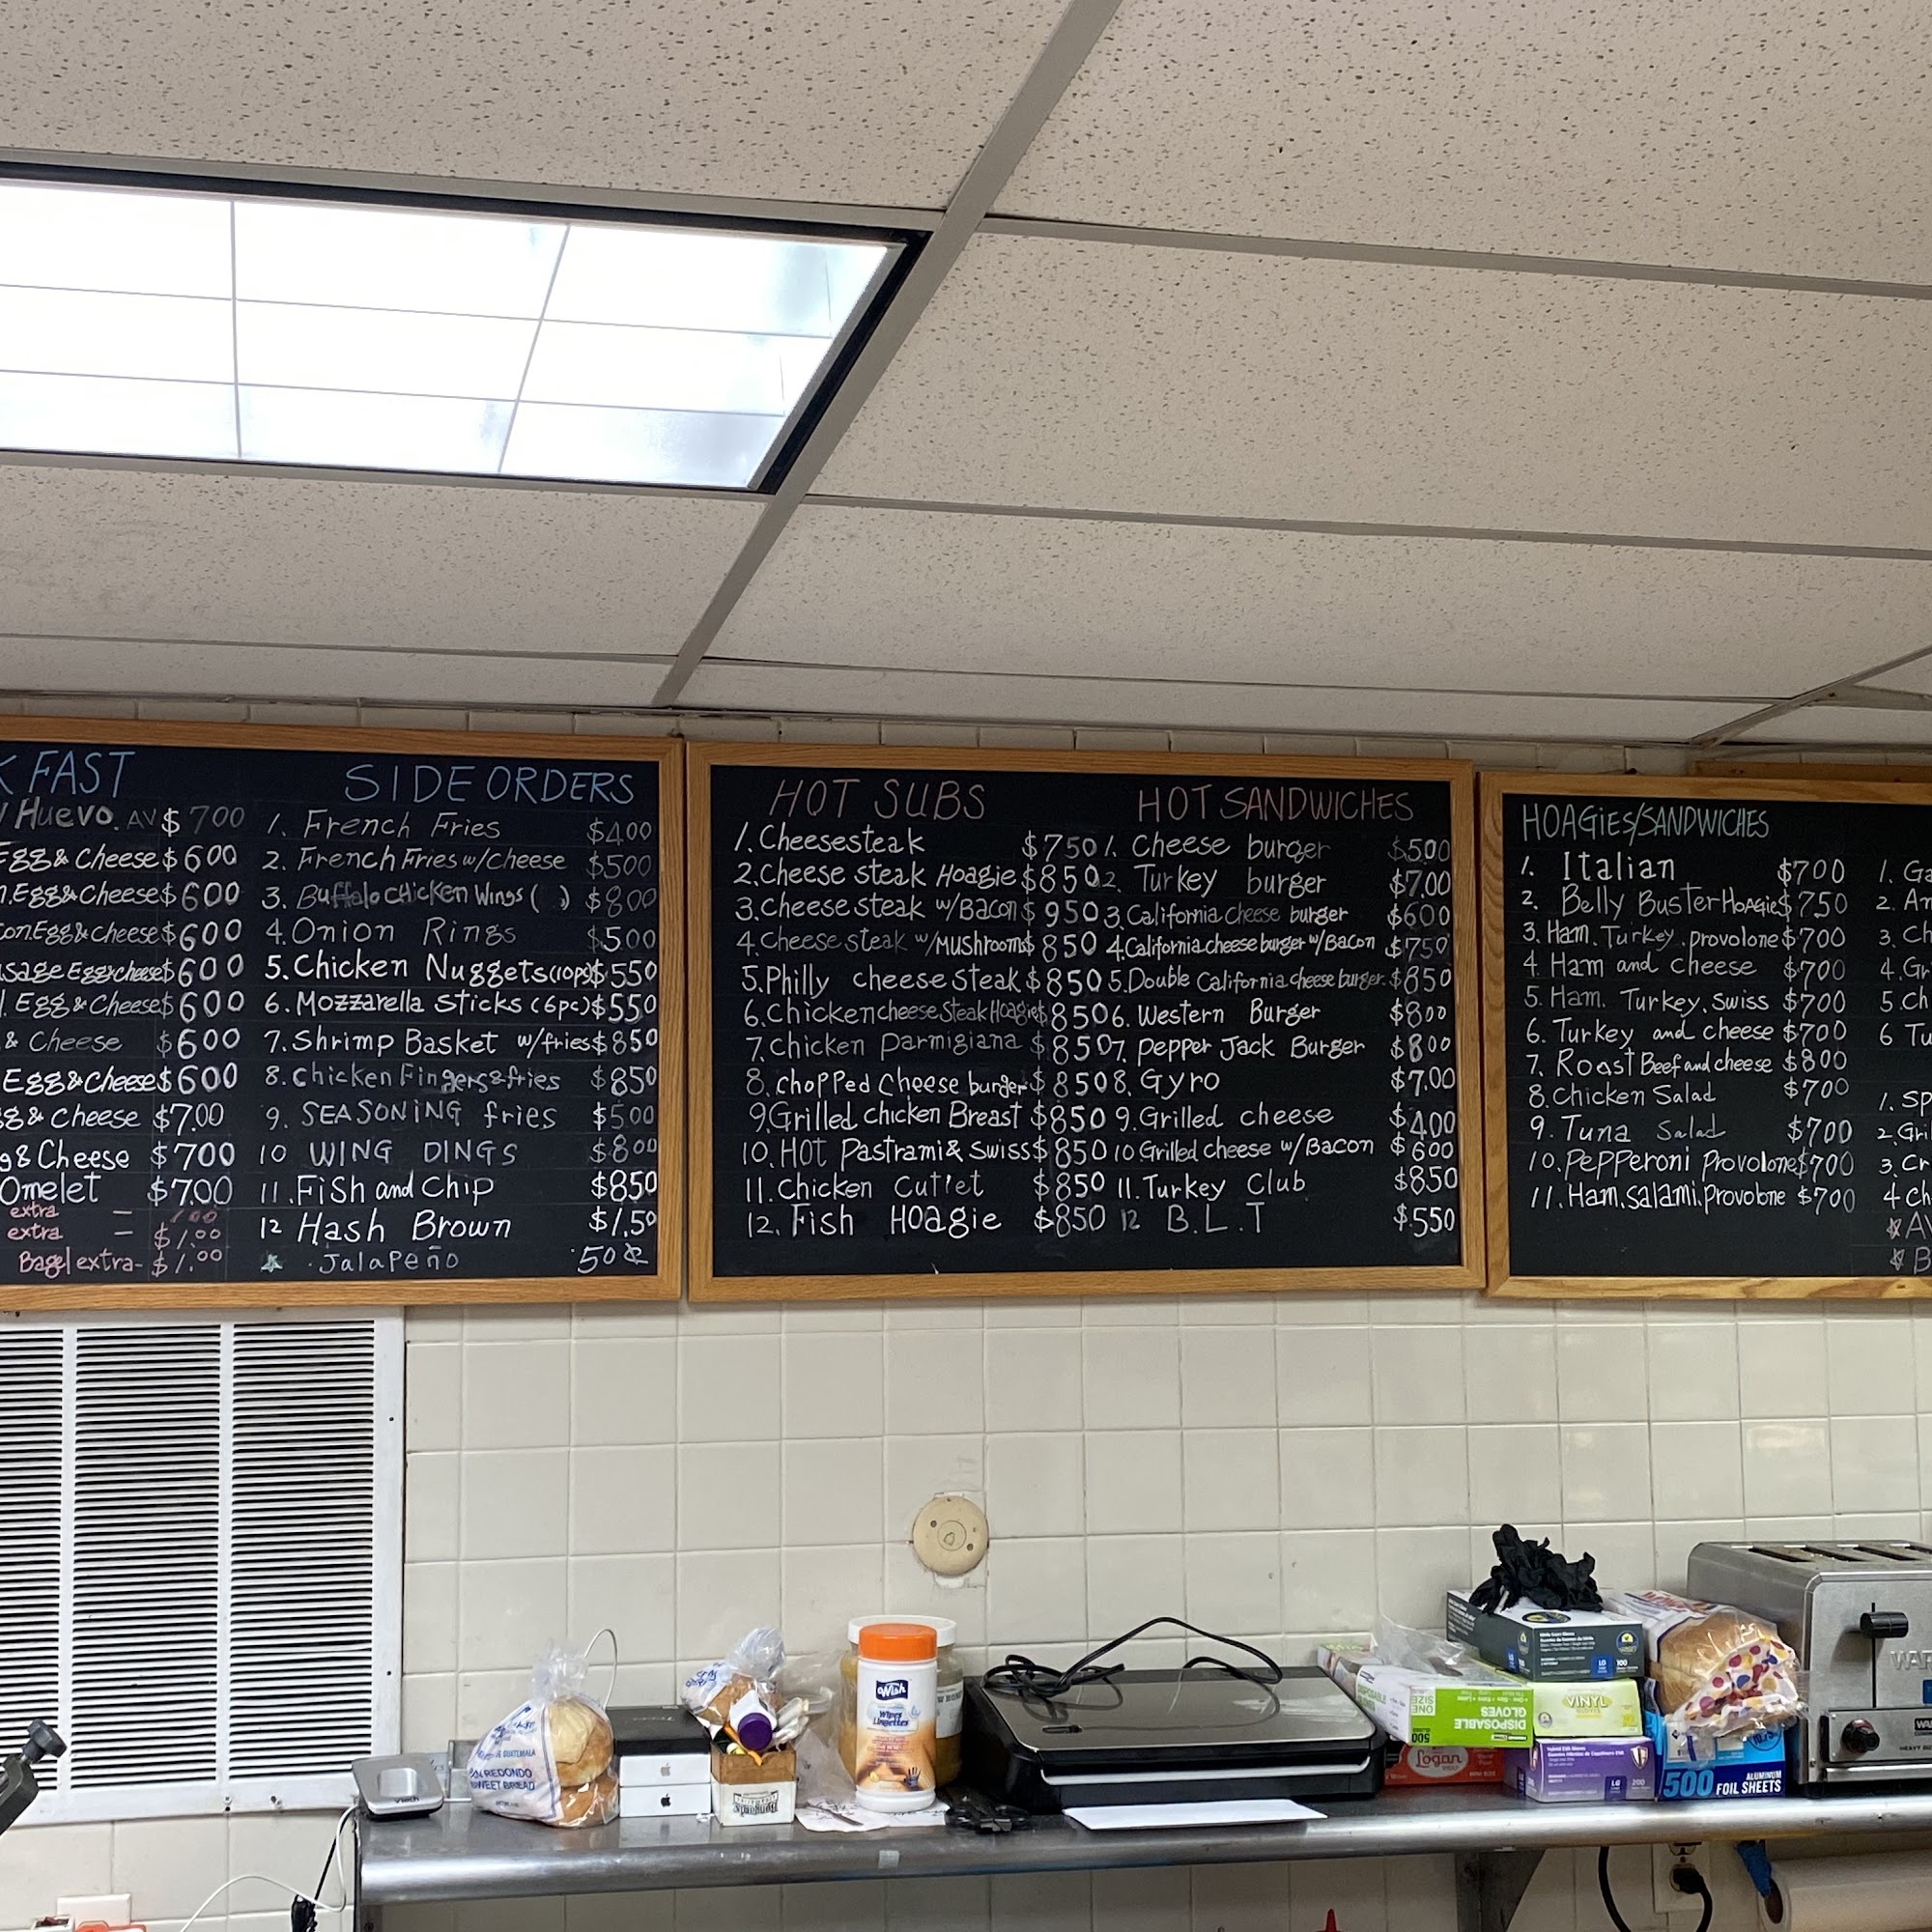 K FAST
Huevo. AV $700
Egg & Cheese $600
Egg & Cheese $600
Egg & Cheese $600
sage Egg & cheese $600
Egg & Cheese $600
& Cheese $600
Egg & Cheese $600
gg & Cheese $7.00
g & Cheese $700
Omelet $7.00
extra — 1.00
extra — $1.00
Bagel extra - $1.00
SIDE ORDERS
1. French Fries $400
2. French Fries w/cheese $500
3. Buffalo chicken Wings ( ) $800
4. Onion Rings $500
5. Chicken Nuggets (10pc) $550
6. Mozzarella Sticks (6pc) $550
7. Shrimp Basket w/fries $850
8. chicken Fingers & fries $850
9. SEASONING fries $500
10 WING DINGS $800
11. Fish and Chip $850
12 Hash Brown $1.50
. Jalapeño .50¢
HOT SUBS
1. Cheesesteak $750
2. Cheese steak Hoagie $850
3. Cheese steak w/Bacon $950
4. Cheese steak w/Mushrooms $850
5. Philly cheese steak $850
6. Chicken cheese Steak Hoagie $850
7. Chicken parmigiana $850
8. chopped Cheese burger $850
9. Grilled chicken Breast $850
10. HOT Pastrami & Swiss $850
11. Chicken Cutlet $850
12. Fish Hoagie $850
HOT SANDWICHES
1. Cheese burger $500
2. Turkey burger $7.00
3. California Cheese burger $600
4. California cheese burger w/Bacon $750
5. Double California cheese burger. $850
6. Western Burger $800
7. pepper Jack Burger $800
8. Gyro $7.00
9. Grilled cheese $400
10 Grilled cheese w/Bacon $600
11. Turkey Club $850
12 B.L.T $.550
HOAGiES/SANDWICHES
1. Italian $700
2. Belly Buster Hoagie $750
3. Ham. Turkey. provolone $700
4. Ham and cheese $700
5. Ham. Turkey. Swiss $700
6. Turkey and cheese $700
7. Roast Beef and cheese $800
8. Chicken Salad $700
9. Tuna Salad $700
10. Pepperoni Provolone $700
11. Ham. salami. provolone $700
1. Ga
2. An
3. Ch
4. Gr
5. Ch
6 Tu
1. Sp
2. Gri
3. Cr
4 ch
A
B
SAN REDONDO
SWEET BREAD
vtech
Wish
Wipes
Lingettes
DISPOSABLE
GLOVES
500
ONE
SIZE
VINYL
LG
100
Logan
LG
200
500 ALUMINUM
FOIL SHEETS
WAR